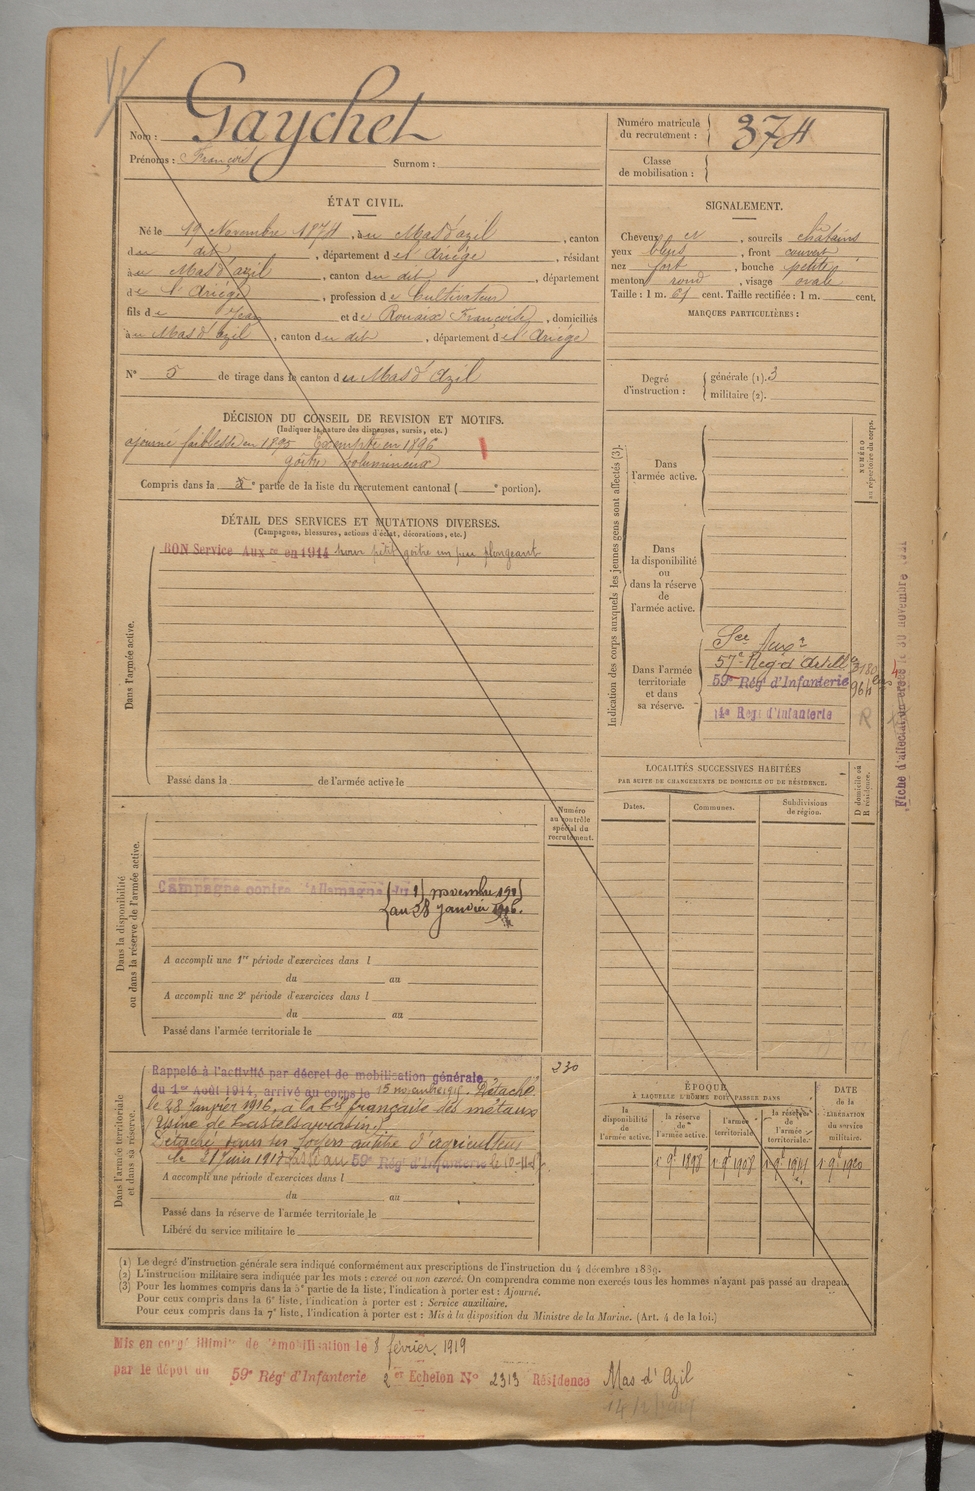 Gaychet
Nom :
Prénoms : François Surnom :
Numéro matricule
du recrutement : 374
Classe
de mobilisation :
ÉTAT CIVIL.
Né le 19 Novembre 1874, à u Mas d'azil, canton
du dit, département de l'Ariége, résidant
au Mas d'azil, canton du dit, département
de l'Ariége, profession de Cultivateur
fils de Jean et de Rouaix Françoise, domiciliés
au Mas d'azil, canton du dit, département de l'Ariége
N° 5 de tirage dans le canton du Mas d'Azil
SIGNALEMENT.
Cheveux et, sourcils châtains
yeux bleus, front couvert
nez fort, bouche petite
menton rond, visage ovale
Taille : 1 m. 61 cent. Taille rectifiée : 1 m. cent.
MARQUES PARTICULIÈRES :
Degré
d'instruction :
générale (1). 3
militaire (2).
DÉCISION DU CONSEIL DE REVISION ET MOTIFS.
(Indiquer la nature des dispenses, sursis, etc.)
ajourné faiblesse en 1895 Exempté en 1896
goître volumineux
Compris dans la 5e partie de la liste du recrutement cantonal ( e portion).
DÉTAIL DES SERVICES ET MUTATIONS DIVERSES.
(Campagnes, blessures, actions d'éclat, décorations, etc.)
Dans l'armée active.
BON Service Aux ce en 1914 pour petit goître un peu plongeant
Passé dans la de l'armée active le
Indication des corps auxquels les jeunes gens sont affectés (3).
NUMÉRO
au répertoire du corps.
Dans
l'armée active.
Dans
la disponibilité
ou
dans la réserve
de
l'armée active.
Dans l'armée
territoriale
et dans
sa réserve.
57e Rég d'Artill
59e Rég' d'Infanterie
14e Rég' d'Infanterie
R
Fiche d'affectation créée le 30 novembre
LOCALITÉS SUCCESSIVES HABITÉES
PAR SUITE DE CHANGEMENTS DE DOMICILE OU DE RÉSIDENCE.
Dates.
Communes.
Subdivisions
de région.
D domicile ou
R résidence.
Numéro
au contrôle
spécial du
recrutement.
Dans la disponibilité
ou dans la réserve de l'armée active.
Campagne contre l'Allemagne du novembre
au 28 janvier
A accompli une 1re période d'exercices dans l
du au
A accompli une 2e période d'exercices dans l
du au
Passé dans l'armée territoriale le
Dans l'armée territoriale
et dans sa réserve.
230
Rappelé à l'activité par décret de mobilisation générale
du 1er Août 1914, arrivé au corps le 15 novembre 1915. Détaché
le 28 janvier 1916, à la Cie française des métaux
usine de Castelsarrasin.
Détaché dans ses foyers au titre d'agriculteur
le 21 juin 1917 Passé au 59e Rég' d'Infanterie le
A accompli une période d'exercices dans l
du au
Passé dans la réserve de l'armée territoriale, le
Libéré du service militaire le
ÉPOQUE
À LAQUELLE L'HOMME DOIT PASSER DANS
la
disponibilité
de
l'armée active.
la réserve
de
l'armée active.
l'armée
territoriale.
la réserve
de
l'armée
territoriale.
DATE
de la
LIBÉRATION
du service
militaire.
(1) Le degré d'instruction générale sera indiqué conformément aux prescriptions de l'instruction du 4 décembre 1889.
(2) L'instruction militaire sera indiquée par les mots : exercé ou non exercé. On comprendra comme non exercés tous les hommes n'ayant pas passé au drapeau.
(3) Pour les hommes compris dans la 5e partie de la liste, l'indication à porter est : Ajourné.
Pour ceux compris dans la 6e liste, l'indication à porter est : Service auxiliaire.
Pour ceux compris dans la 7e liste, l'indication à porter est : Mis à la disposition du Ministre de la Marine. (Art. 4 de la loi.)
Mis en congé illimité de démobilisation le 8 février 1919
par le dépôt du 59e Rég' d'Infanterie 2 er Echelon N° 2313 Résidence Mas d'Azil